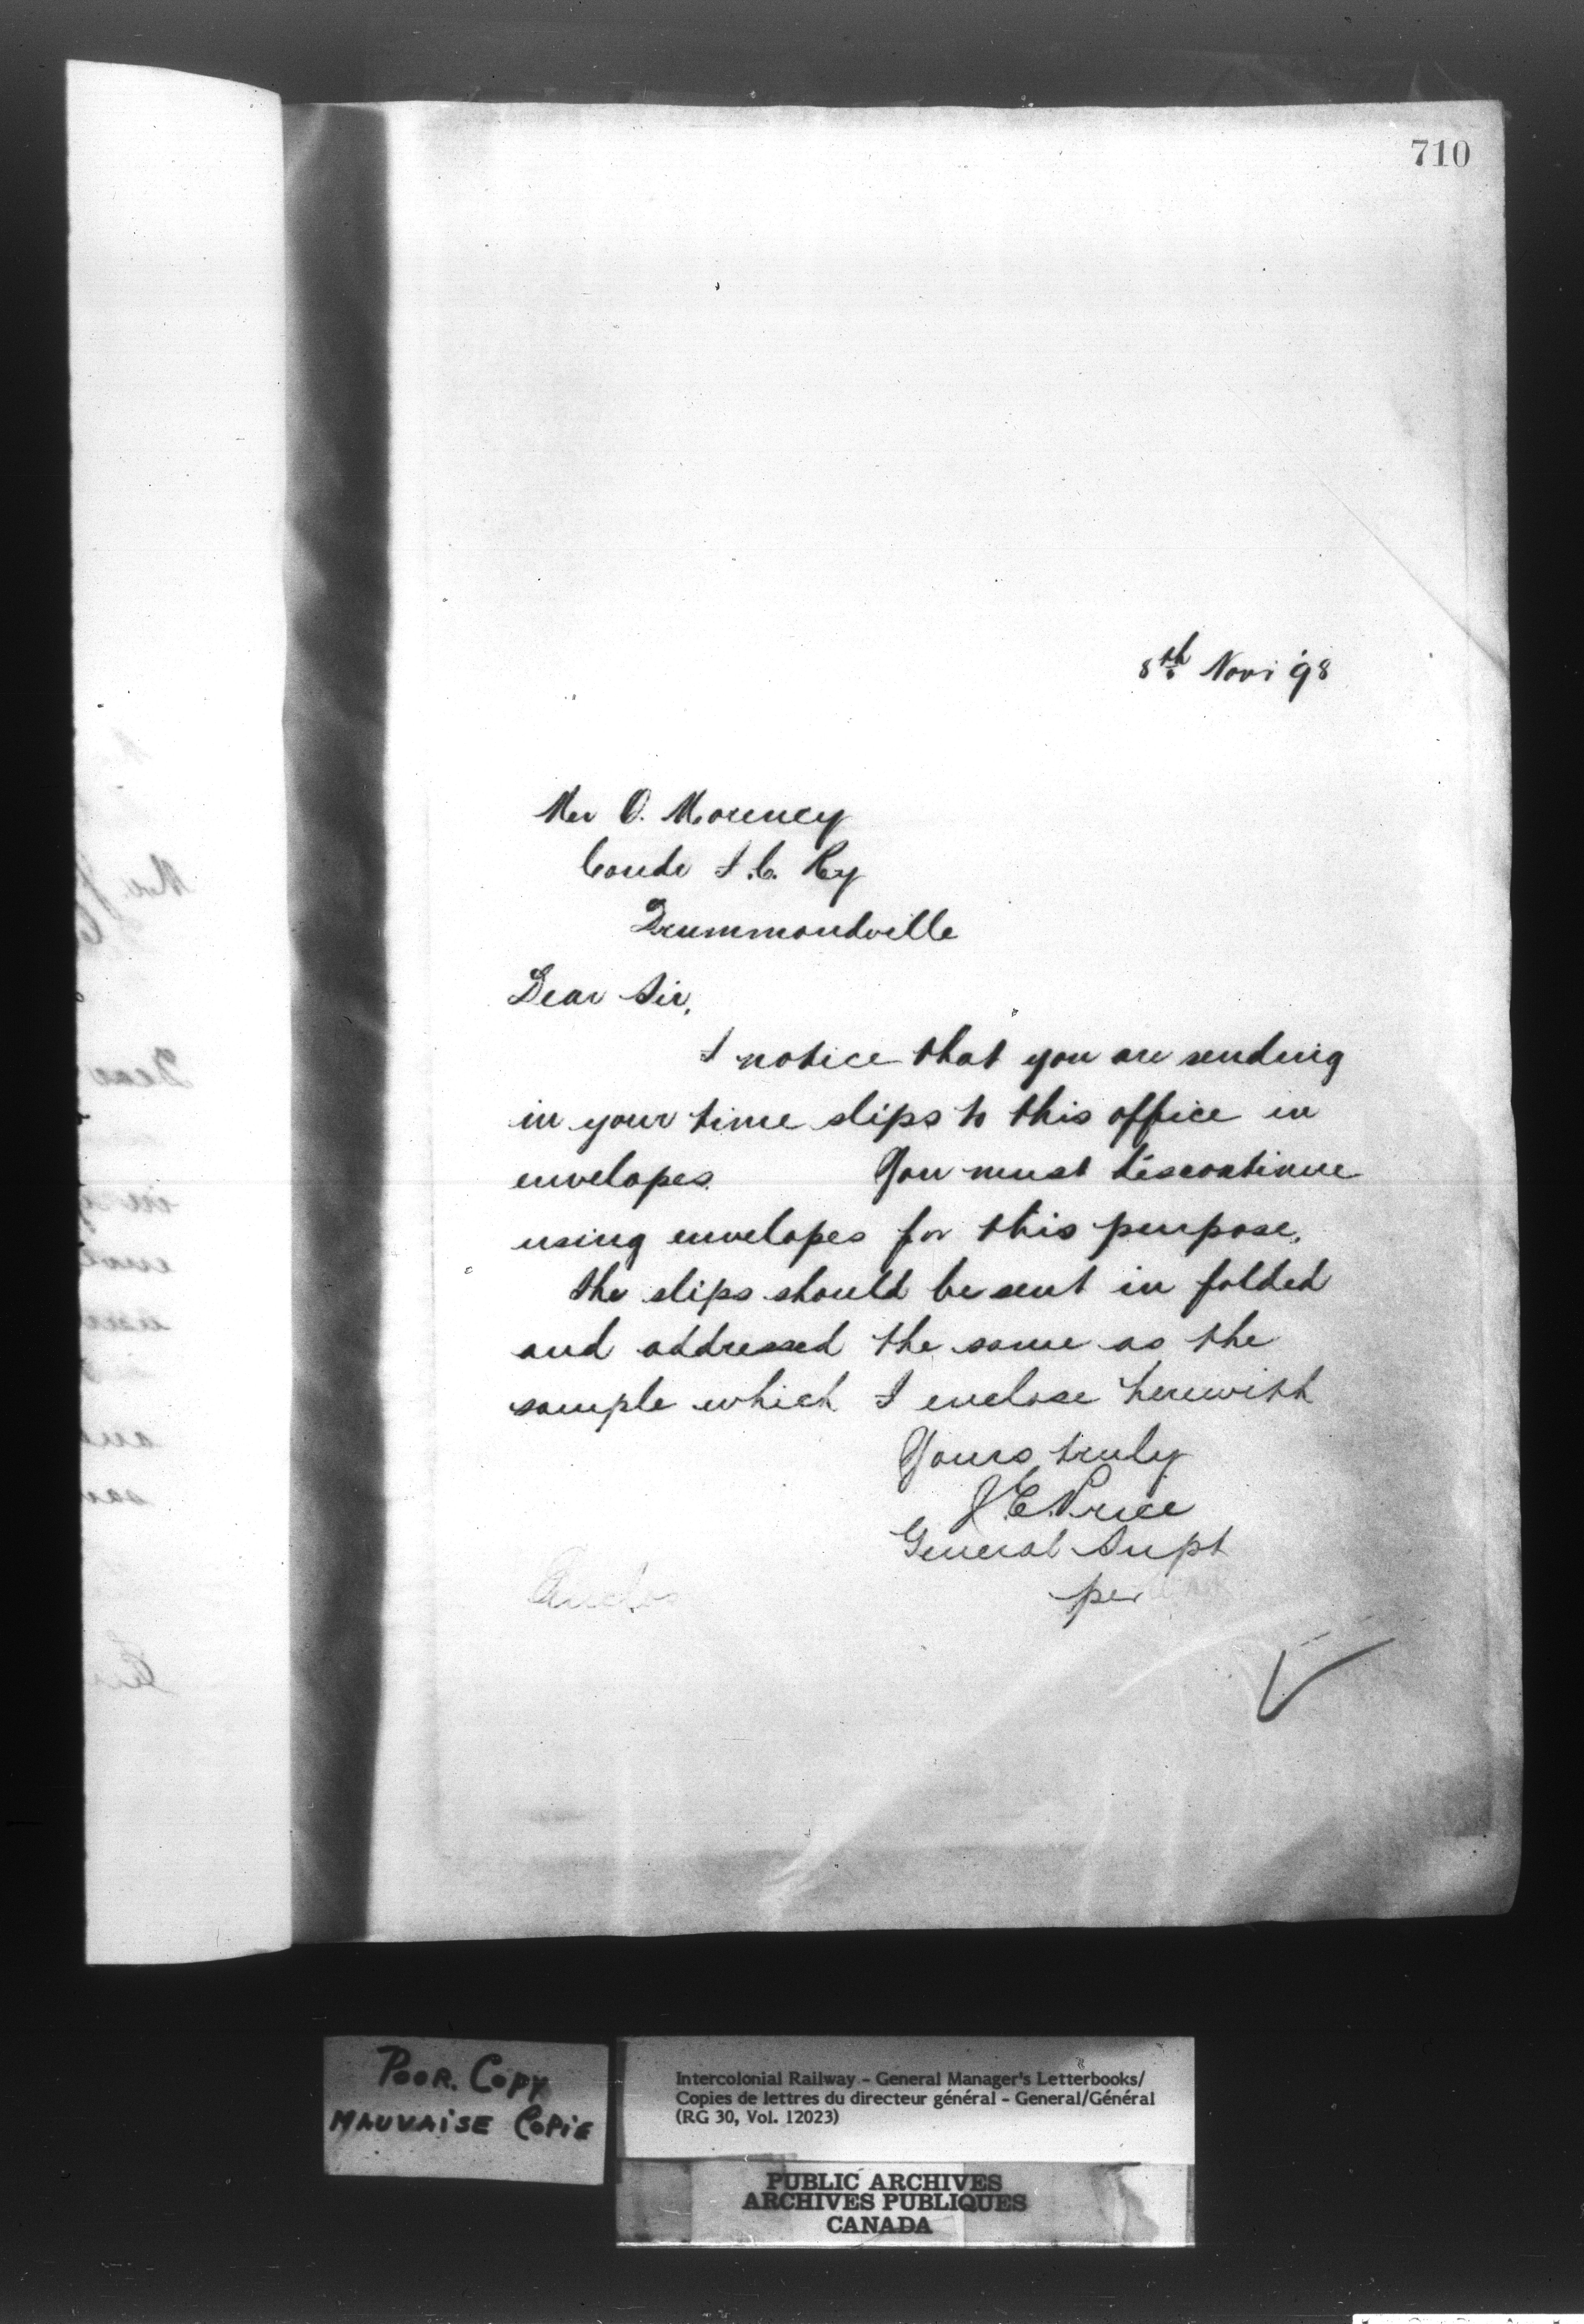 710
8th Nov '98
Mr O. Mourncy
Condr I.C. Ry
Drummondville
Dear Sir,
I notice that you are sending
in your time slips to this office in
envelopes. You must discontinue
using envelopes for this purpose.
the slips should be sent in folded
and addressed the same as the
sample which I enclose herewith
Yours truly
J.E. Price
General Supt
per
POOR. COPY
MAUVAISE COPIE
Intercolonial Railway - General Manager's Letterbooks/
Copies de lettres du directeur général - General/Général
(RG 30, Vol. 12023)
PUBLIC ARCHIVES
ARCHIVES PUBLIQUES
CANADA